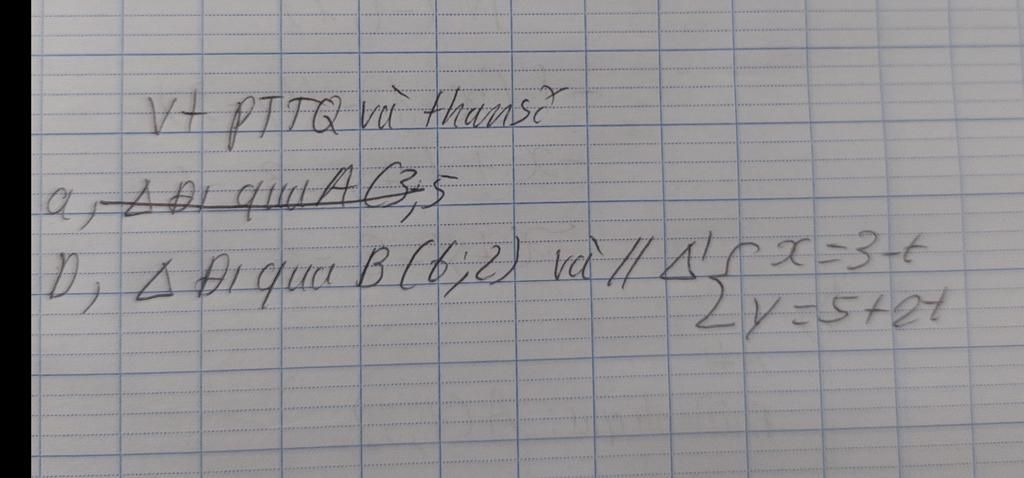 Vt PTTQ và thamsố
a, Δ Đi qua A (3;5
D, Δ Đi qua B (6;2) và // Δ' { x = 3-t
y = 5+2t